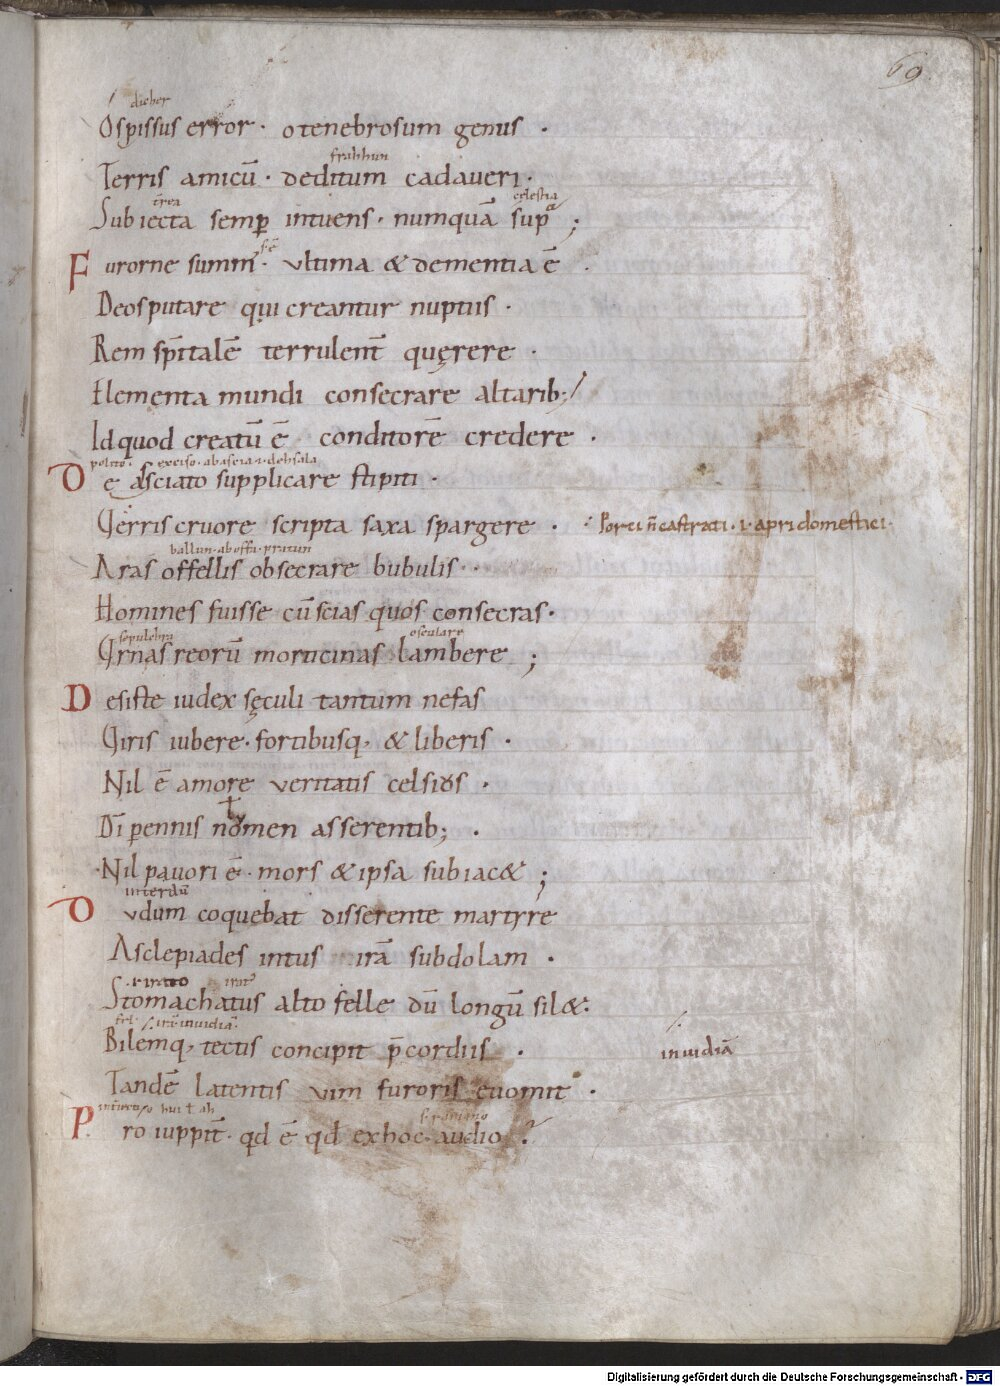 69
dicher
O spissus error · o tenebrosum genus ·
frabhun
Terris amicū · deditum cadaueri ·
t̄rea celestia
Subiecta semp̲ intuens · numquā sup̲a ;
s· ē
Furorne summ᷒ · vltima & dementia ē ·
Deos putare qui creantur nuptiis ·
Rem sp̄italē terrulent̄ quęrere ·
Elementa mundi consecrare altarib; /
Id quod creatū ē conditorē credere ·
polito · exciso · ab ascia · i · dehsala
De asciato supplicare stipiti ·
Verris cruore scripta saxa spargere · ·/· Porci n̄ castrati · i · apri domestici ·
ballun · ab offa · pratun
Aras offellis obsecrare bubulis ·
Homines fuisse cū scias quos consecras ·
sepulchra osculare
Vrnas reorū morticinas lambere ;
Desiste iudex sęculi tantum nefas
Viris iubere · fortibusq, & liberis ·
Nil ē amore veritatis celsius ·
Dī p̲ennis nomen asserentib; ·
Nil pauori ē · mors & ipsa subiac& ;
interdū
Dudum coquebat disserente martyre
Asclepiades intus irā subdolam ·
Stomachatus alto felle dū longū sil& ·
fel · /· irā · inuidiā ·
Bilemq, tectis concipit p̄cordiis · inuidiā
Tandē latentis vim furoris euomit ·
Pro iuppit̄ · qd ē qd ex hoc audio ·
Digitalisierung gefördert durch die Deutsche Forschungsgemeinschaft - DFG